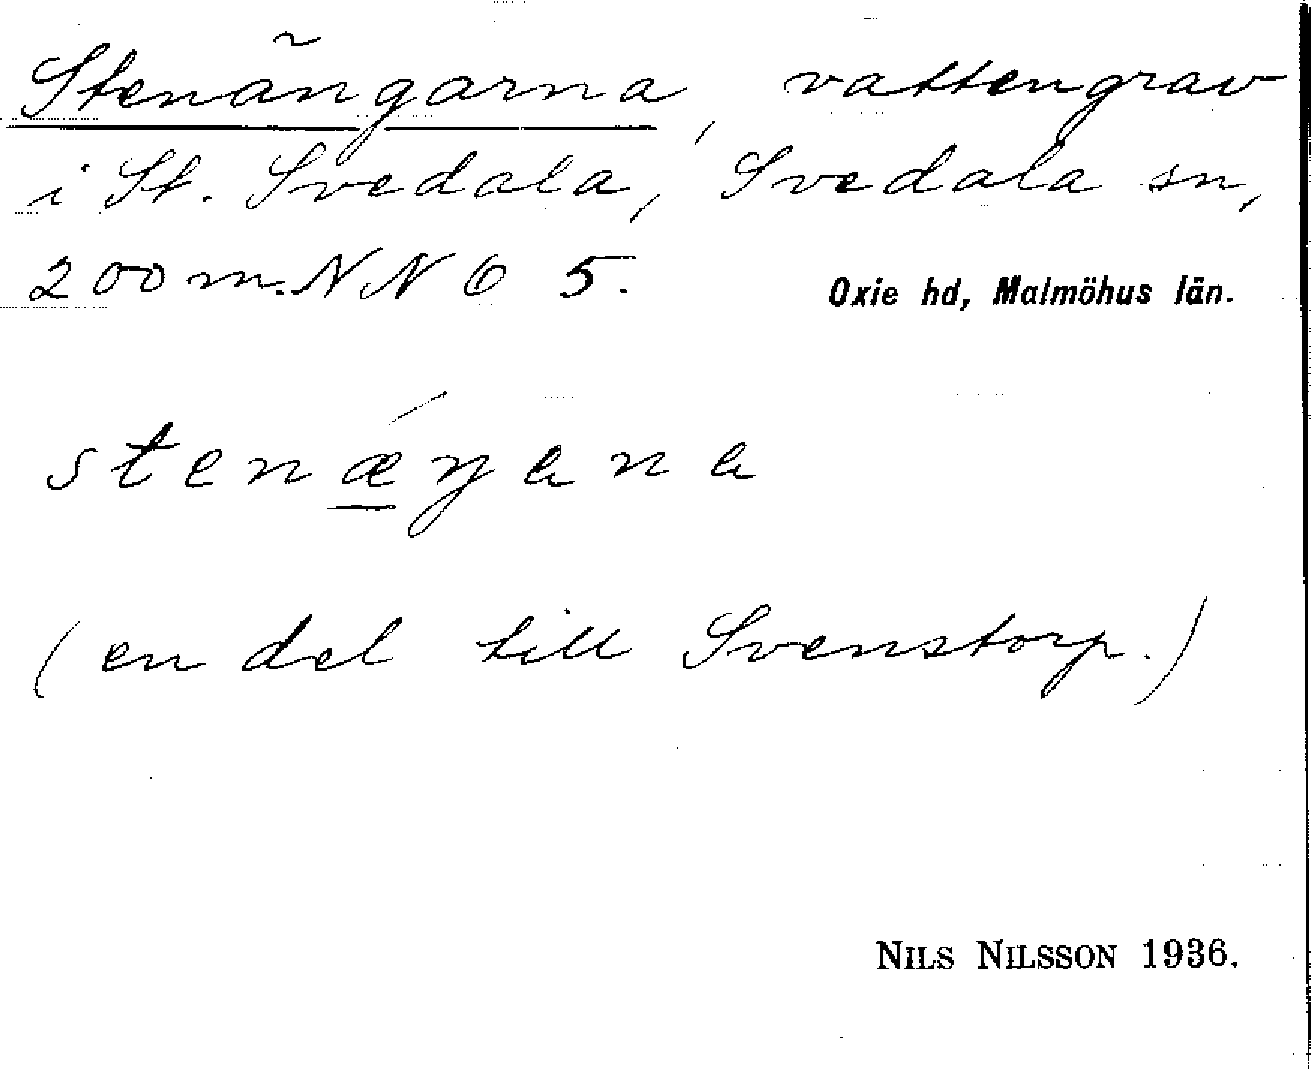 Stenängarna, vattengrav
i St. Svedala, Svedala sn,
200 m. NNÖ 5.
Oxie hd, Malmöhus län.
stenǽŋana
(en del till Svenstorp.)
NILS NILSSON 1936.